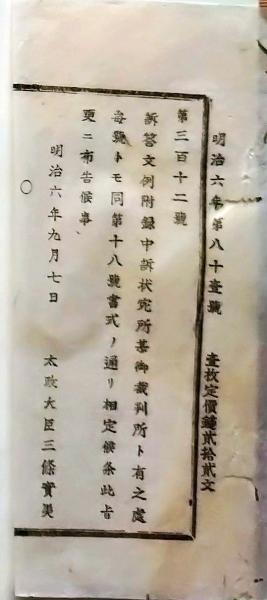 明治六年第八十壹號 壹枚定價錢貳拾貳文
第三百十二號
訴答文例附録中訴状宛所某御裁判所ト有之處
毎號トモ同第十八號書式ノ通リ相定候条此旨
更ニ布告候事
明治六年九月七日 太政大臣三條實美
○